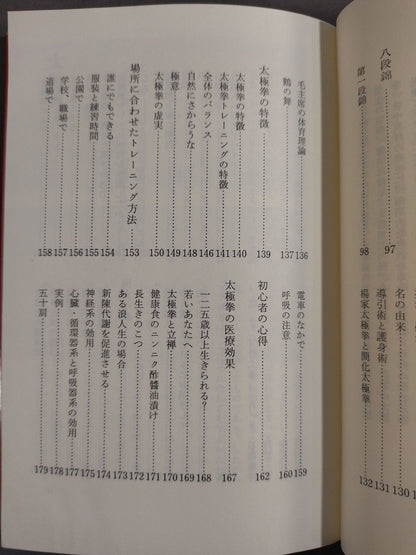 八段錦……97
第一段錦……98
名の由来……130
導引術と護身術……131
楊家太極拳と簡化太極拳……132
毛主席の体育理論……136
鶴の舞……137
太極拳の特徴……139
太極拳の特徴……140
太極拳トレーニングの特徴……141
全体のバランス……146
自然にさからうな……148
極意……149
太極拳の虚実……150
場所に合わせたトレーニング方法……153
誰にでもできる……154
服装と練習時間……155
公園で……156
学校、職場で……157
道場で……158
電車のなかで……159
呼吸の注意……160
初心者の心得……162
太極拳の医療効果……167
一二五歳以上生きられる？……168
若いあなたへ……169
太極拳と立禅……170
健康食のニンニク酢醤油漬け……171
長生きのこつ……172
ある浪人生の場合……173
新陳代謝を促進させる……174
神経系の効用……175
心臓・循環器系と呼吸器系の効用……177
実例……178
五十肩……179